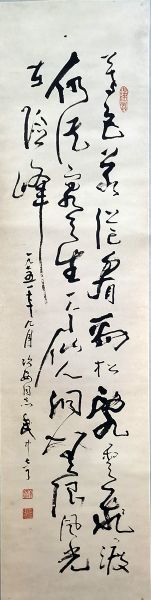 暮色苍茫看劲松乱云飞渡
仍从容天生一个仙人洞无限风光
在险峰
一九六五年九月